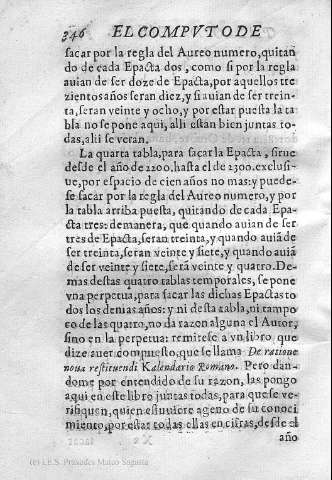 346 EL COMPVTO DE
sacar por la regla del Aureo numero, quitan
do de cada Epacta dos, como si por la regla
auian de ser doze de Epacta, por aquellos tre
zientos años seran diez, y si auian de ser trein
ta, seran veinte y ocho, y por estar puesta la ta
bla no se pone aqui, alli estan bien juntas to-
das, alli se veran.
La quarta tabla, para sacar la Epacta, sirue
desde el año de 2200, hasta el de 2300. exclusi-
ue, por espacio de cien años no mas: y puede-
se sacar por la regla del Aureo numero, y por
la tabla arriba puesta, quitando de cada Epa-
cta tres: demanera, que quando auian de ser
tres de Epacta, seran treinta, y quando auiã de
ser treinta, seran veinte y siete, y quando auiã
de ser veinte y siete, serã veinte y quatro. De-
mas destas quatro tablas temporales, se pone
vna perpetua, para sacar las dichas Epactas to
dos los demas años: y ni desta tabla, ni tampo
co de las quatro, no da razon alguna el Autor,
sino en la perpetua: remitese a vn libro, que
dize auer compuesto, que se llama De ratione
noua restituendi Kalendario Romano. Pero dan-
dome por entendido de su razon, las pongo
aqui en este libro juntas todas, para que se ve-
rifiquen, quien estuuiere ageno de su conoci
miento, por estar todas ellas en cifras, desde el
año
(c) I.E.S. Práxedes Mateo Sagasta